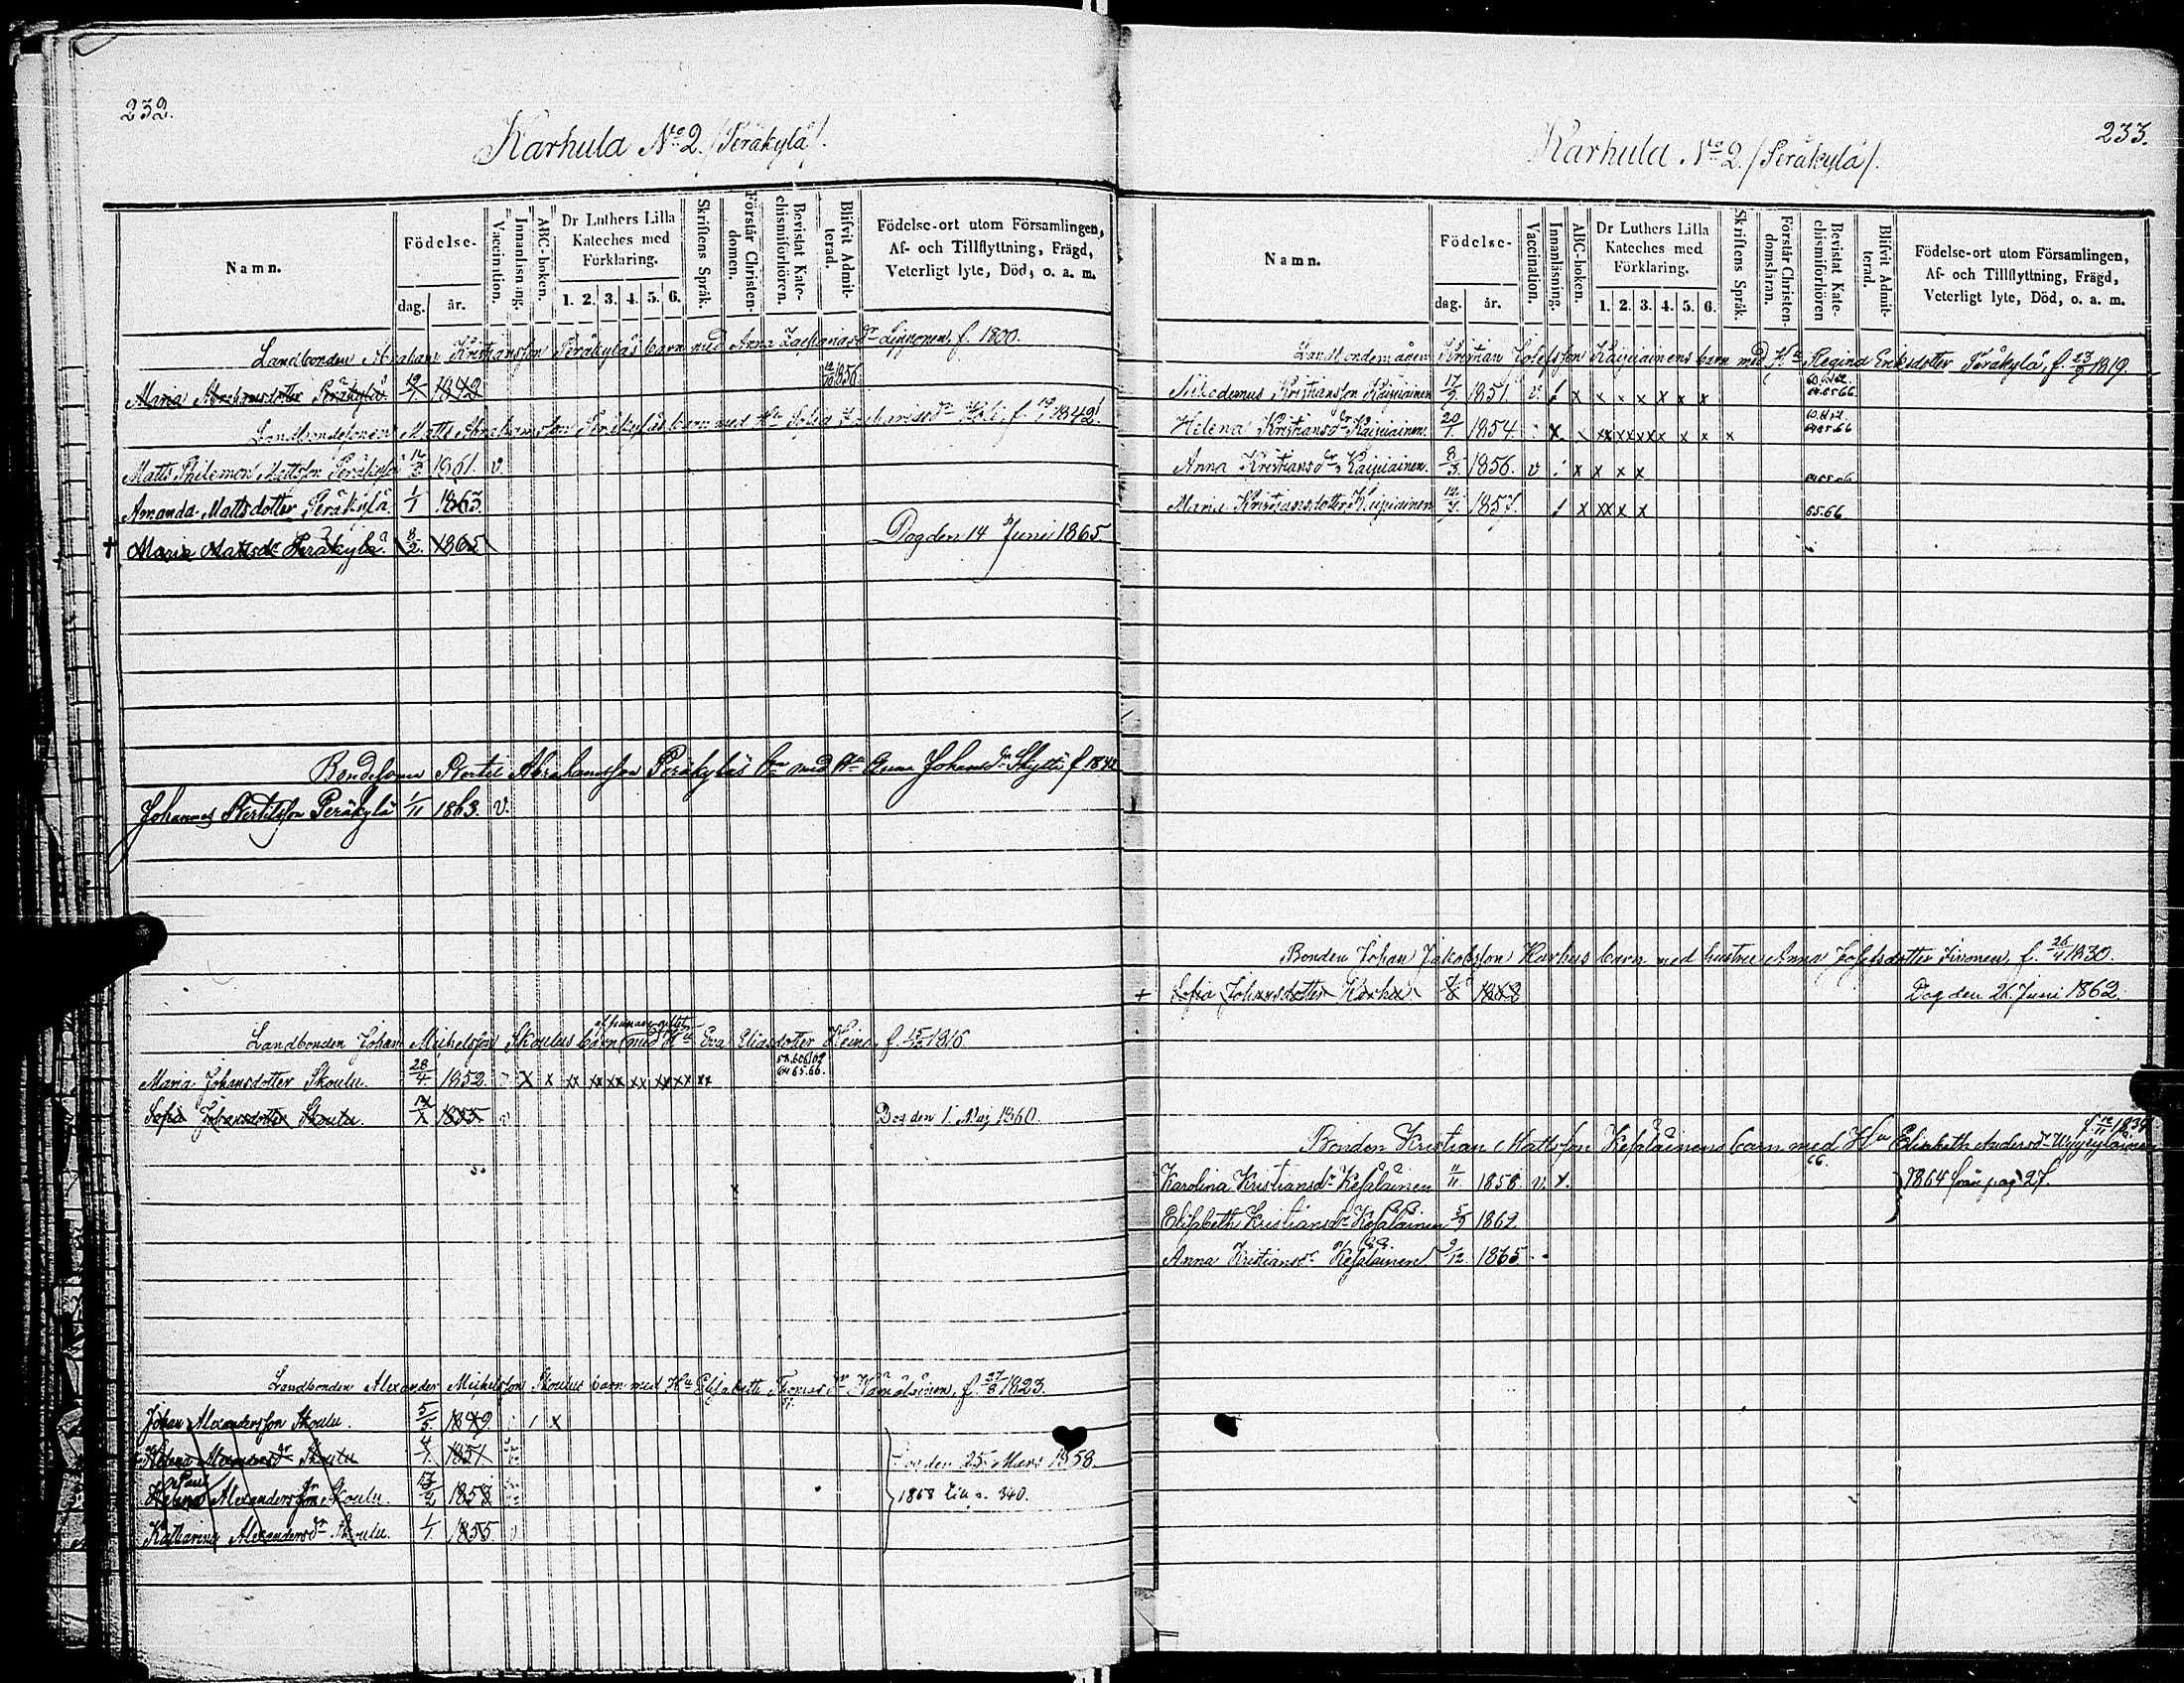 232.
Karhula No 2. /Peräkylä/.
Namn.
Födelse-
dag.
år.
Vaccination.
Innanläsning.
ABC-boken.
Dr Luthers Lilla
Kateches med
Förklaring.
1. 2. 3. 4. 5. 6.
Skriftens Språk.
Förstår Christen-
domen.
Bevistat Kate-
chismiförhören.
Blifvit Admit-
terad.
Födelse-ort utom Församlingen,
Af- och Tillflyttning, Frägd,
Veterligt lyte, Död, o. a. m.
Landbonden Abraham Kristiansson Peräkyläs barn med Anna Zachariasdr f. 1800.
Maria Abrahamsdotter Peräkylä 19/1 1842 12/10 1856.
Landbondesonen Matts Abrahamsson Peräkyläs barn med Hu Sofia f. 19/1 1842!
Matts Philemon Mattsson Peräkylä 12/3 1861. v.
Amanda Mattsdotter Peräkylä 1/1 1863.
+ Maria Mattsdr Peräkylä. 8/2. 1865 Dog den 14 Juni 1865
Bondesonen Bertil Abrahamsson Peräkyläs bn med Hu Anna Johansdr Skyttä f 1842
Johannes Bertilsson Peräkylä 1/11 1863. v.
Landbonden Johan Michelsson Skoulus barn med Hu Eva Eliasdotter Heino f. 15/12 1816
Maria Johansdotter Skoulu. 28/4. 1852. x x xx xx xx xx xx xx xx 64 65.66.
Sofia Johansdotter Skoulu. 1855 v Dog den 1 Maj 1860.
Landbonden Alexander Michelsson Skoulus barn med Hu Elisabeth Thomasdr Hämäläinen, f. 27/8 1823.
Johan Alexandersson Skoulu. 5/5. 1849 x
Helena Alexandersdr Skoulu 4/1. 1851 den 25 Mars 1858.
Paul Alexandersson Skoulu. 1853 1858 till p. 340.
Katharina Alexandersdr Skoulu. 1/1. 1855. v
233.
Karhula No 2. /Peräkylä/.
Namn.
Födelse-
dag.
år.
Vaccination.
Innanläsning.
ABC-boken.
Dr Luthers Lilla
Kateches med
Förklaring.
1. 2. 3. 4. 5. 6.
Skriftens Språk.
Förstår Christen-
domsläran.
Bevistat Kate-
chismiförhören
Blifvit Admit-
terad.
Födelse-ort utom Församlingen,
Af- och Tillflyttning, Frägd,
Veterligt lyte, Död, o. a. m.
Landbondemågen Kristian Josefsson Kaipiainens barn med Hu Regina Eriksdotter Peräkylä, f. 23/3 1819.
Nikodemus Kristiansson Kaipiainen 17/9. 1851. v. x x x x x x x 64.65 66.
Helena Kristiansdr Kaipiainen. 20/1. 1854. x x xx xx xx x x x x 64 65.66
Anna Kristiansdr Kaipiainen. 8/3. 1856. v x x x x 64 65.66
Maria Kristiansdotter Kaipiainen 12/7. 1857. x xx x x 65.66
Bonden Johan Jakobsson Karhus barn med hustru Anna Josefsdotter f. 26/4 1830.
+ Sofia Johansdotter Karhu 1862 Dog den 26 Juni 1862.
f 12/11 1834
Bonden Kristian Mattsson Kesäläinens barn med Hu Elisabeth Andersdr
66.
Karolina Kristiansdr Kesäläinen 11/11 1858. v. x. 1864 från pag 27.
Elisabeth Kristiansdr Kesäläinen 5/9 1862
Anna Kristiansdr Kesäläinen 9/12. 1865